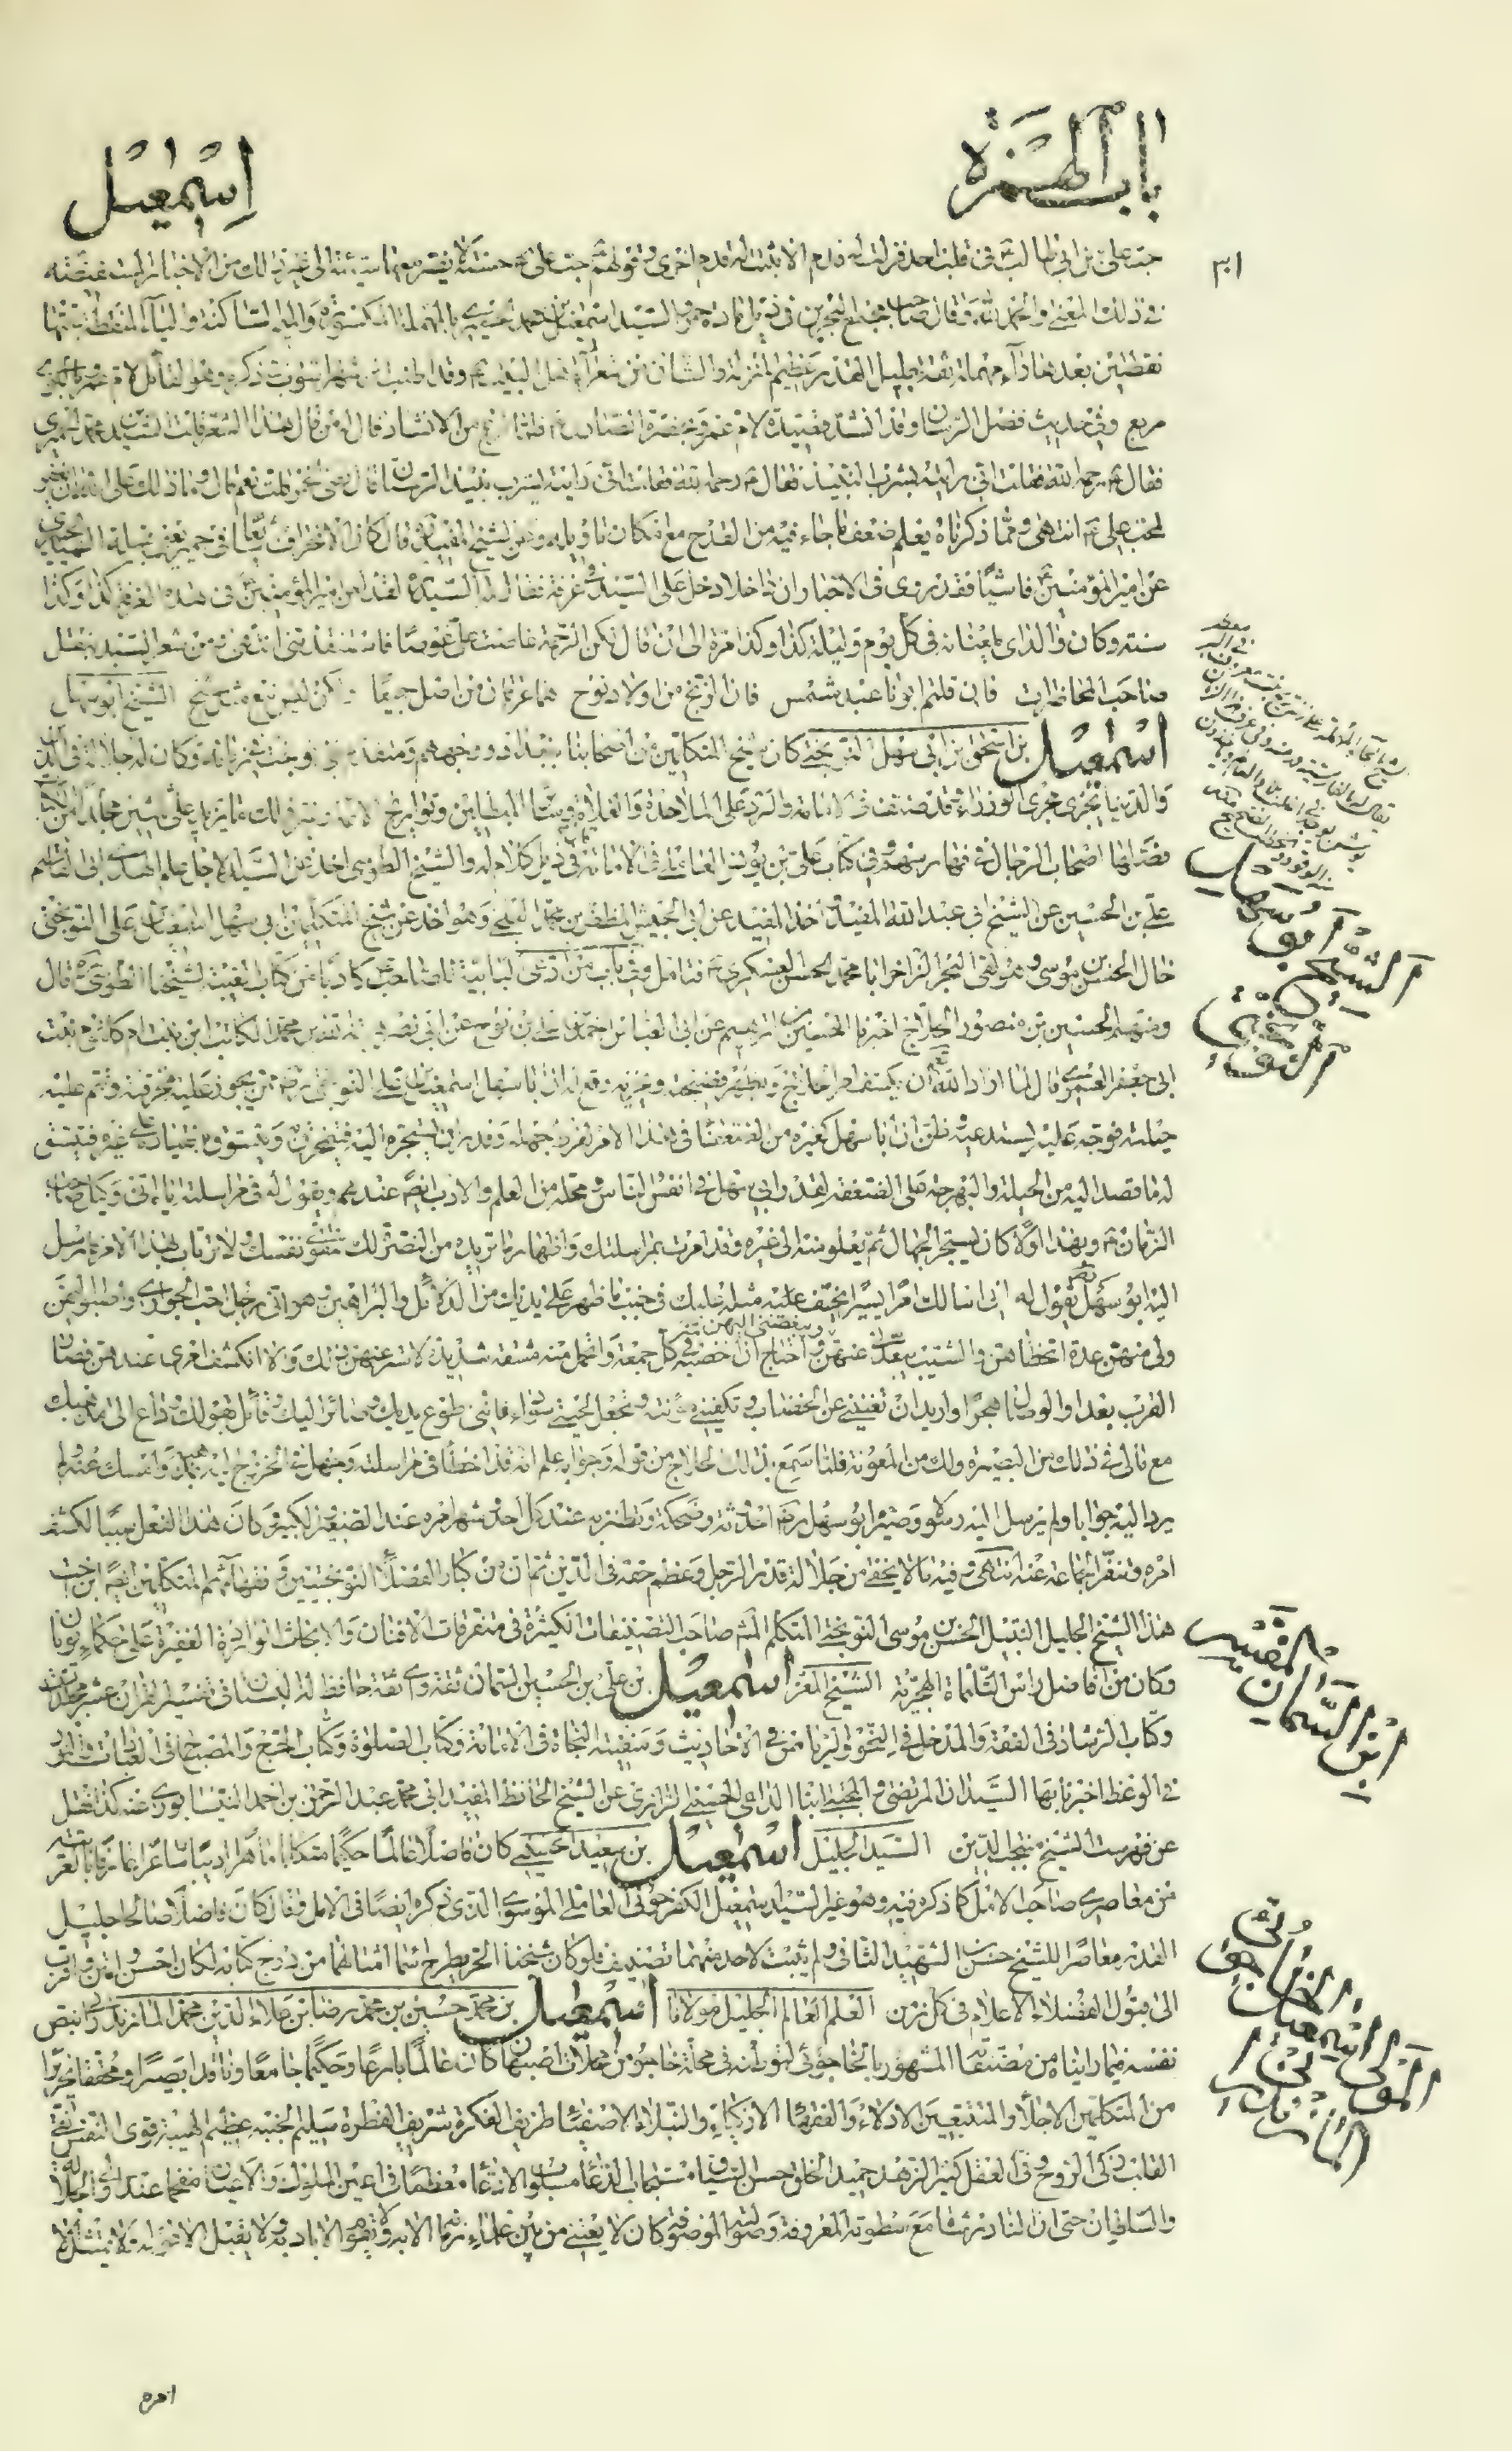 باب الهمزة
اسمعيل
٣١
حب علي بن ابي طالب في قلب احد فزلت له قدم الا ثبتت له قدم اخرى وقولهم حب علي حسنة لا يضر معها سيئة الى غير ذلك من الاخبار
في ذلك المعنى والحمد لله وقال صاحب مجمع البحرين في ذيل مادة حمر والسيد اسمعيل بن محمد الحميري بالمهملة المكسورة والميم الساكنة والياء المنقطة تحتها
نقطتين بعدها راء مهملة ثقة جليل القدر عظيم المنزلة والشان من شعراء اهل البيت
مربع وفي حديث فضل الرسان وقد انشد قصيدة لام عمرو بحضرة الصادق فلما فرغ من الانشاد قال له من قال هذا الشعر قلت السيد محمد الحميري
فقال رحمه الله فقلت اني رايته يشرب النبيذ فقال رحمه الله فقلت اني رايته يشرب نبيذ الرستاق قال تعني الخمر قلت نعم قال وما ذلك على الله ان يغفر
لمحب علي انتهى ومما ذكرناه يعلم ضعف ما جاء فيه من القدح مع امكان تاويله وعن الشيخ المفيد قال كان الانحراف
عن امير المؤمنين فاشيا فقد روى في الاخبار ان داخلا دخل على السيد في غرفة فقال له السيد لقد لعن امير المؤمنين في هذه الغرفة كذا وكذا
سنة وكان والداي يلعنانه في كل يوم وليلة كذا وكذا مرة الى ان قال لكن الرحمة غاصت علي غوصا فاستنقذتني انتهى ومن شعر السيد بنقل
صاحب المحاضرات فان قلتم ابونا عبد شمس فان الزنج من اولاد نوح هما غرفان من اصل جميعا ولكن ليس نبع مثل شيح الشيخ ابو سهل
اسمعيل بن اسحق بن ابي سهل النوبختي كان شيخ المتكلمين من اصحابنا ببغداد ووجههم ومتقدم بني نوبخت في زمانه وكان له جلالة في الدين
والدنيا يجري مجرى الوزراء قد صنف في الامامة والرد على الملاحدة والغلاة وساير المبطلين وتواريخ الائمة وغير ذلك ما يزيد على
فصلها اصحاب الرجال في فهارسهم وفي كتاب علي بن يونس العاملي في الامامة في ذيل كلام له والشيخ الطوسي اخذ عن السيد الاجل علم الهدى ابي القاسم
علي بن الحسين عن الشيخ ابي عبد الله المفيد واخذ المفيد عن ابي الجيش المظفر بن محمد البلخي وهو اخذ عن شيخ المتكلمين ابي سهل اسمعيل بن علي النوبختي
خال الحسن بن موسى وهو لقي البحر الزاخر ابا محمد الحسن العسكري فتامل وفي باب من ادعى البابية لصاحب كاذبا من كتاب الغيبة لشيخنا الطوسي قال
ومنهم الحسين بن منصور الحلاج اخبرنا الحسين بن ابراهيم عن ابي العباس احمد بن علي بن نوح عن ابي نصر هبة الله بن محمد الكاتب ابن بنت ام كلثوم بنت
ابي جعفر العمري قال لما اراد الله ان يكشف امر الحلاج ويظهر فضيحته ويخزيه وقع له ان ابا سهل اسمعيل بن علي النوبختي ممن يجوز عليه مخرقته وتتم عليه
حيلته فوجه اليه يستدعيه وظن ان ابا سهل كغيره من الضعفاء في هذا الامر لفرط جهله وقدر ان يستجره اليه فيتمخرق ويتسوق بانقياده على غيره فيستتب
له ما قصد اليه من الحيلة والبهرجة على الضعفة لقدر ابي سهل في انفس الناس ومحله من العلم والادب ايضا عندهم ويقول له في مراسلته اياه اني وكيل صاحب
الزمان وبهذا اولا كان يستجر الجهال ثم يعلو منه الى غيره وقد امرت بمراسلتك واظهار ما تريده من النصرة لك لتقوي نفسك ولا ترتاب بهذا الامر فارسل
اليه ابو سهل يقول له اني اسالك امرا يسيرا يخف مثله عليك في جنب ما ظهر على يديك من الدلائل والبراهين وهو اني رجل احب الجواري واصبو اليهن
ولي منهن عدة اتحظاهن والشيب يبعدني عنهن ويبغضني اليهن واحتاج ان اخضبه في كل جمعة واتحمل منه مشقة شديدة لاستر عنهن ذلك والا انكشف امري عندهن فصار
القرب بعدا والوصال هجرا واريد ان تغنيني عن الخضاب وتكفيني مؤنته وتجعل لحيتي سوداء فانني طوع يديك وصائر اليك وقائل بقولك وداع الى مذهبك
مع مالي في ذلك من البصيرة ولك من المعونة فلما سمع ذلك الحلاج من قوله وجوابه علم انه قد اخطأ في مراسلته وجهل في الخروج اليه بمذهبه وامسك عنه ولم
يرد اليه جوابا ولم يرسل اليه رسولا وصيره ابو سهل احدوثة وضحكة ويطنز به عند كل احد وشهر امره عند الصغير والكبير وكان هذا الفعل سببا لكشف
امره وتنفير الجماعة عنه انتهى وفيه ما لا يخفى من جلالة قدر الرجل وعظم حقه في الدين ثم ان من كبار الفضلاء النوبختيين وفقهائهم المتكلمين ايضا ابن اخت
هذا الشيخ الجليل النبيل الحسن بن موسى النوبختي المتكلم صاحب التصنيفات الكثيرة في متفرقات الافنان والابحاث الوافرة الغفيرة على حكماء يونان
وكان من افاضل راس الثلثمائة الهجرية الشيخ المفسر اسمعيل بن علي بن الحسين السمان ثقة واي ثقة حافظ له البستان في تفسير القران عشر مجلدات
وكتاب الرشاد في الفقه والمدخل في النحو والرياض في الاحاديث وسفينة النجاة في الامامة وكتاب الصلوة وكتاب الحج والمصباح في العبادات والنور
في الوعظ اخبرنا بها السيدان المرتضى والمجتبى ابنا الداعي الحسيني الرازي عن الشيخ الحافظ المفيد ابي محمد عبد الرحمن بن احمد النيسابوري عنه كذا نقل
عن فهرست الشيخ منتجب الدين السيد الجليل اسمعيل بن سعيد الحسيني كان فاضلا عالما حكيما متكلما ماهرا اديبا شاعرا
من معاصري صاحب الامل كما ذكره فيه وهو غير السيد اسمعيل الكفرحوني العاملي الموسوي الذي ذكره ايضا في الامل وقال كان فاضلا صالحا جليل
القدر معاصرا للشيخ حسن بن الشهيد الثاني ولم يثبت لاحد منهما تصنيف فلو كان شيخنا الحر يطرح اسماء امثالهما من درج كتابه لكان احسن واقرب
الى قبول الفضلاء الاعلام في كل زمن العلم العالم الجليل مولانا اسمعيل بن محمد حسين بن محمد رضا بن علاء الدين محمد المازندراني
نفسه فيما رايناه من مصنفاته المشهور بالخاجوئي لتوطنه في محلة خاجو من محلات اصبهان كان عالما بارعا وحكيما جامعا وناقدا بصيرا ومحققا نحريرا
من المتكلمين الاجلاء والمتتبعين الادلاء والفقهاء الاذكياء والنبلاء الاصفياء طريف الفكرة شريف الفطرة سليم الجنبة عظيم الهيبة قوي النفس نقي
القلب زكي الروح وفي العقل كثير الزهد حميد الخلق حسن السياق مستجاب الدعاء مسلوب الادعاء معظما في اعين الملوك والاعيان مفخما عند اولي الجلالة
والسلطان حتى ان النادر شاه مع سطوته المعروفة وصولته الموصوفة كان لا يعتني من بين علماء زمانه الا به ولا يقوم الا بادبه ولا يقبل الا قوله ولا يمتثل الا
امره
الشيخ ابو سهل
النوبختي
ابن السمان المفسر
المولى اسمعيل الخاجوئي
المازندراني